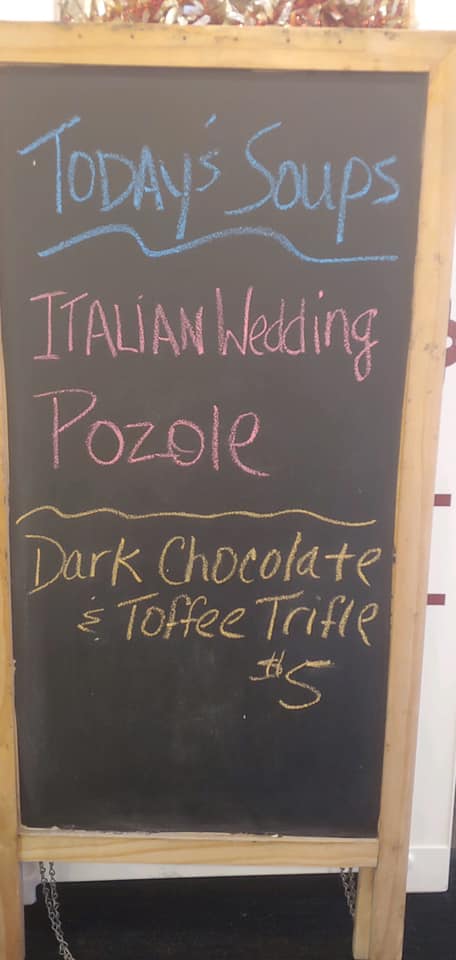 Today's Soups
Italian Wedding
Pozole
Dark Chocolate
& Toffee Trifle
$5